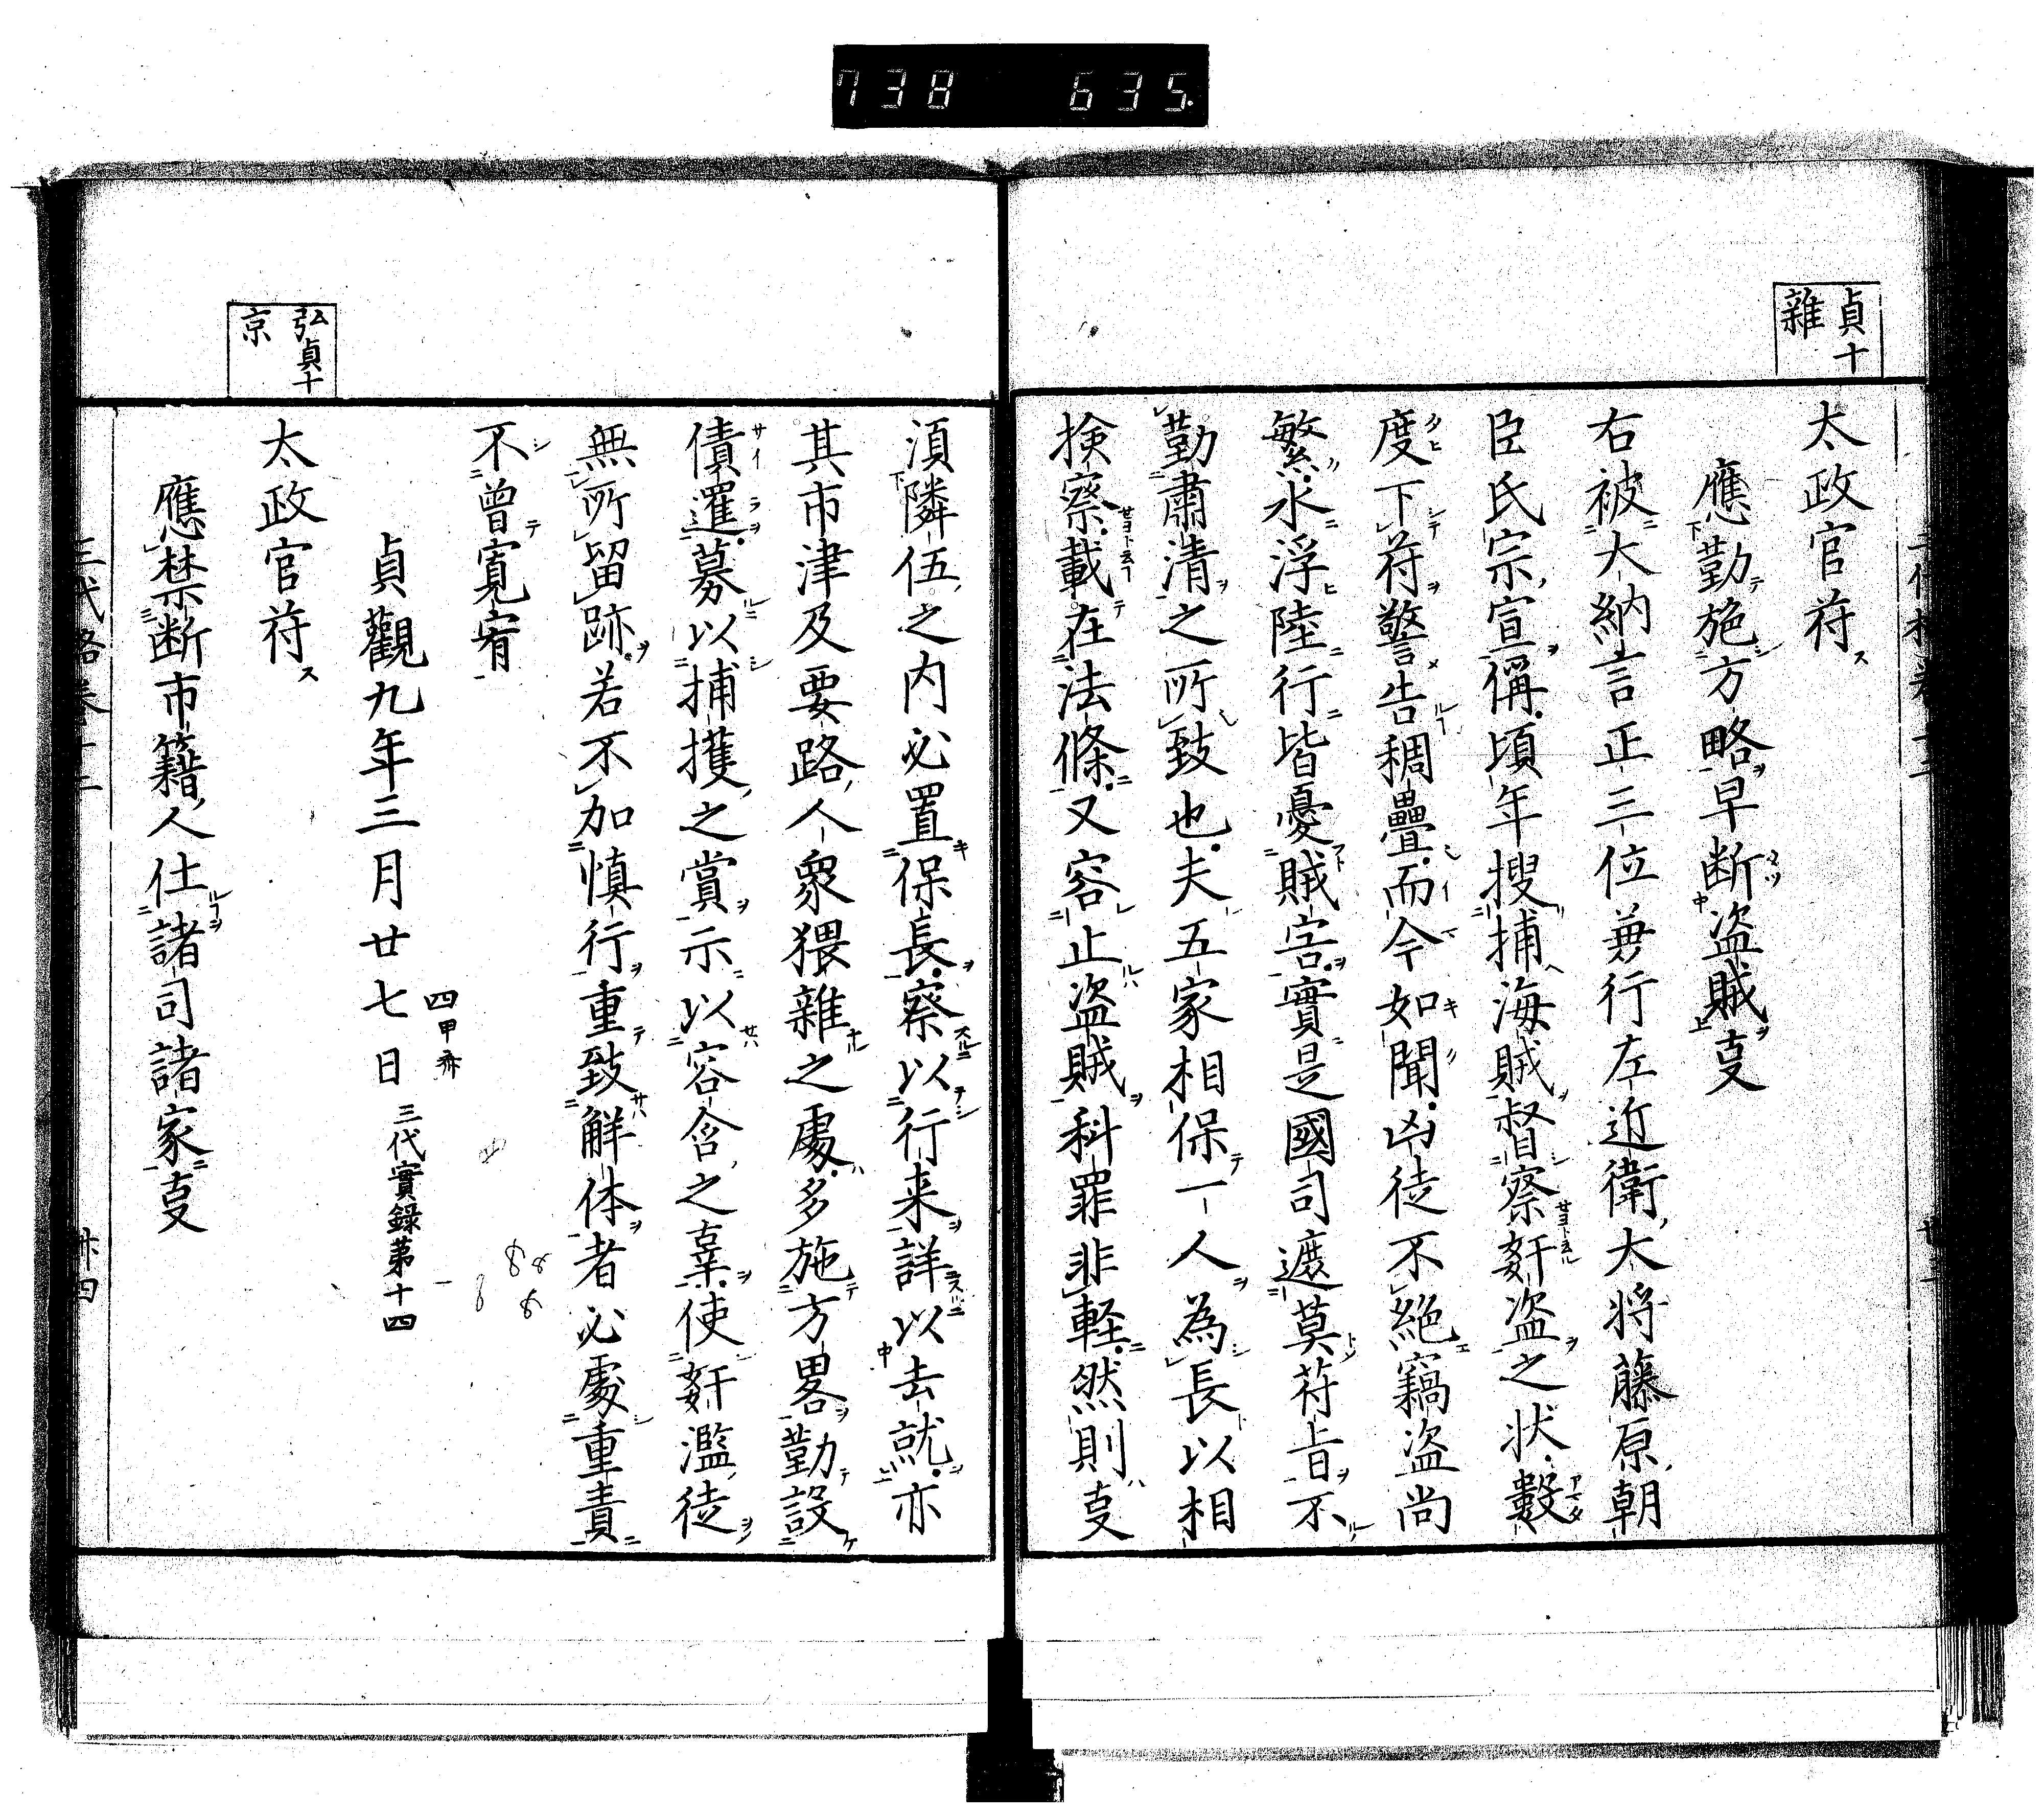 738 635.
貞十
雜
太政官符
應勤施方略早断盗賊㕝
右被大納言正三位兼行左近衛大将藤原朝
臣氏宗宣偁頃年搜捕海賊督察姧盗之状數
度下符警告稠疊而今如聞凶徒不絶竊盗尚
繁水浮陸行皆憂賊害實是國司遮莫苻旨不
勤肅清之所致也夫五家相保一人為長以相
捡察載在法條又容止盗賊科罪非軽然則㕝
須隣伍之内必置保長察以行来詳以去就亦
其市津及要路人衆猥雜之處多施方畧勤設
債邏募以捕擭之賞示以容含之辜使姧濫徒
無所留跡若不加慎行重致解体者必處重責
不曾寛宥
貞觀九年三月廿七日
三代實錄第十四
弘貞十
京
太政官符
應禁断市籍人仕諸司諸家㕝
三代格卷十二
卅四